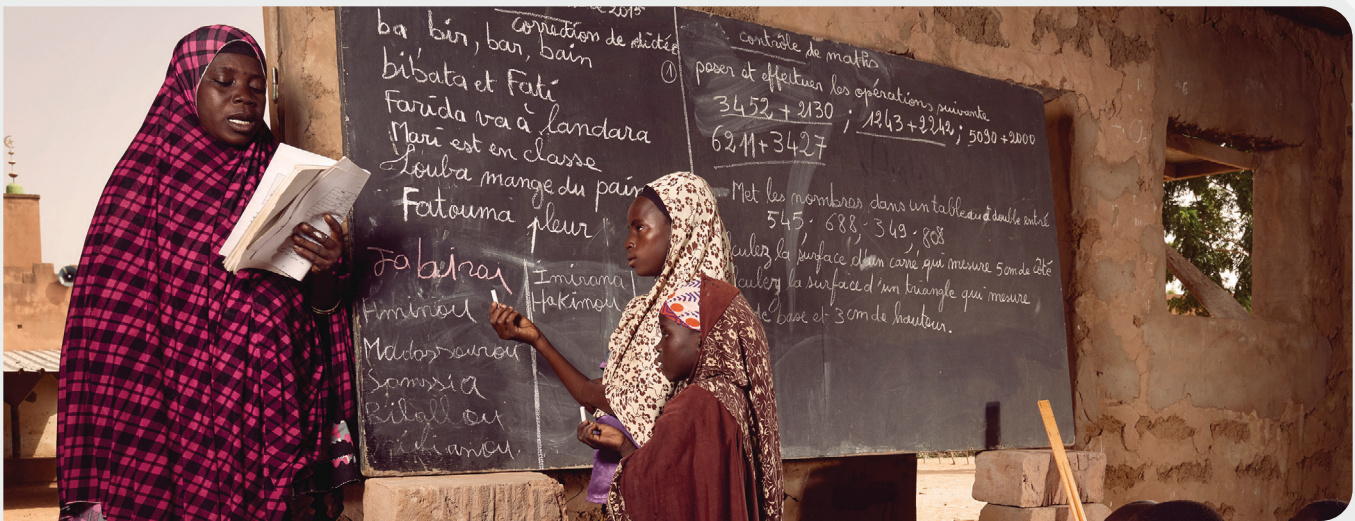 2015
correction de dictée
ba bir, bar, bain
bibata et Fati
Farida va à landara
Mari est en classe
Louba mange du pain
Fatouma pleur
Imirana
Hakimou
Aminou
Samssia
①
contrôle de maths
poser et effectuer les opérations suivante
3452 + 2130 ; 1243 + 2242 ; 5090 + 2000
6211 + 3427
Met les nombres, dans un tableau à double entré
545 ; 688 ; 349 ; 808
culez la surface d'un carré qui mesure 5cm de côté
culez la surface d'un triangle qui mesure
de base et 3cm de hauteur.